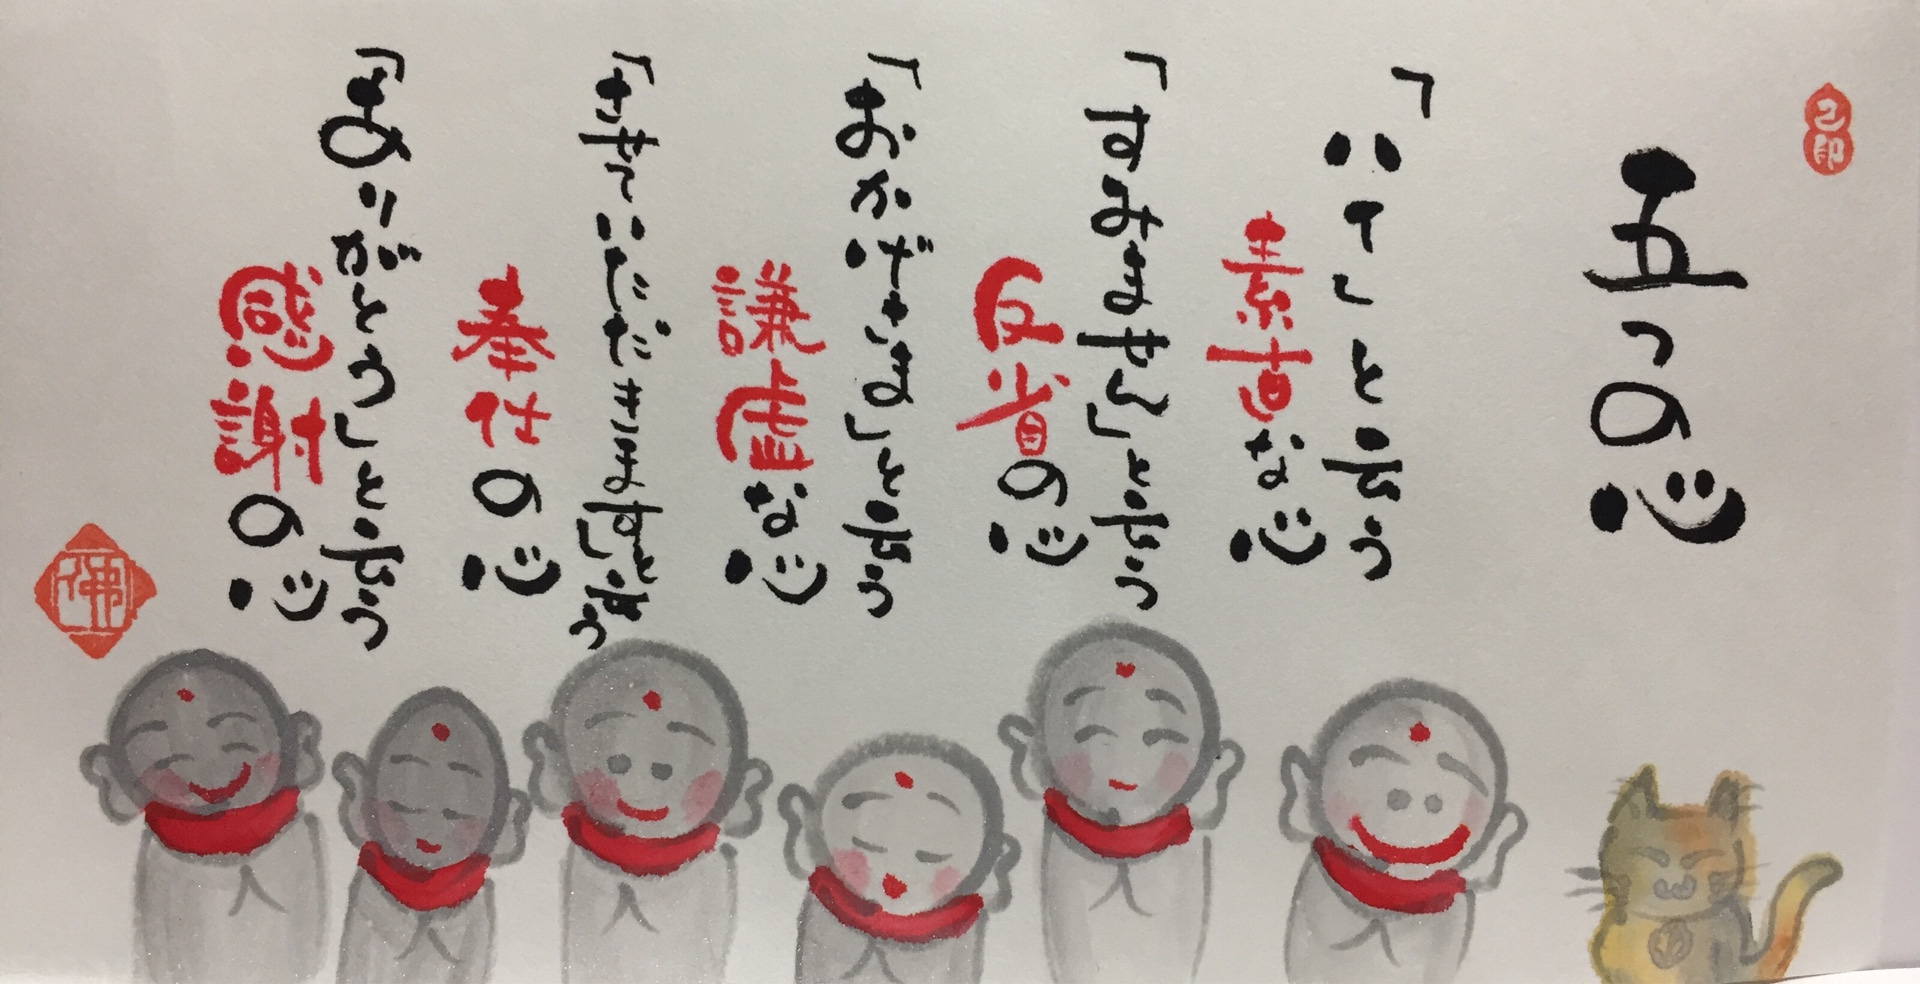 五つの心
「ハイ」と言う
素直な心
「すみません」と言う
反省の心
「おかげさま」と言う
謙虚な心
「させていただきます」と言う
奉仕の心
「ありがとう」と言う
感謝の心
佛